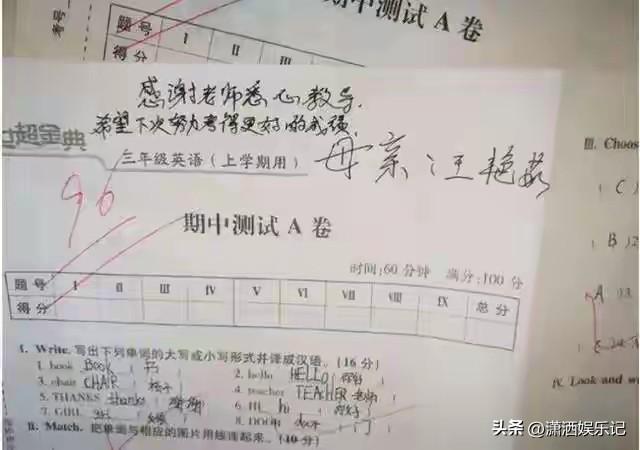 期中测试 A 卷
考号
题号 I II III
得分
感谢老师悉心教导,
希望下次努力考得更好的成绩
三年级英语(上学期用)
母亲:汪艳茹
96
期中测试 A 卷
时间:60分钟 满分:100分
题号 I II III IV V VI VII VIII IX 总分
得分
I. Write. 写出下列单词的大写或小写形式并译成汉语。(16分)
1. book BOOK ( 书 )
2. hello HELLO ( 你好 )
3. chair CHAIR ( 椅子 )
4. teacher TEACHER ( 老师 )
5. THANKS thanks ( 谢谢 )
6. HI hi ( 你好 )
7. GIRL girl ( 女孩 )
8. DOOR door ( 门 )
II. Match. 把单词与相应的图片用线连起来。(10分)
III. Choos
( C )
( B ) 2
A
IX. Look and w
头条 @潇洒娱乐记